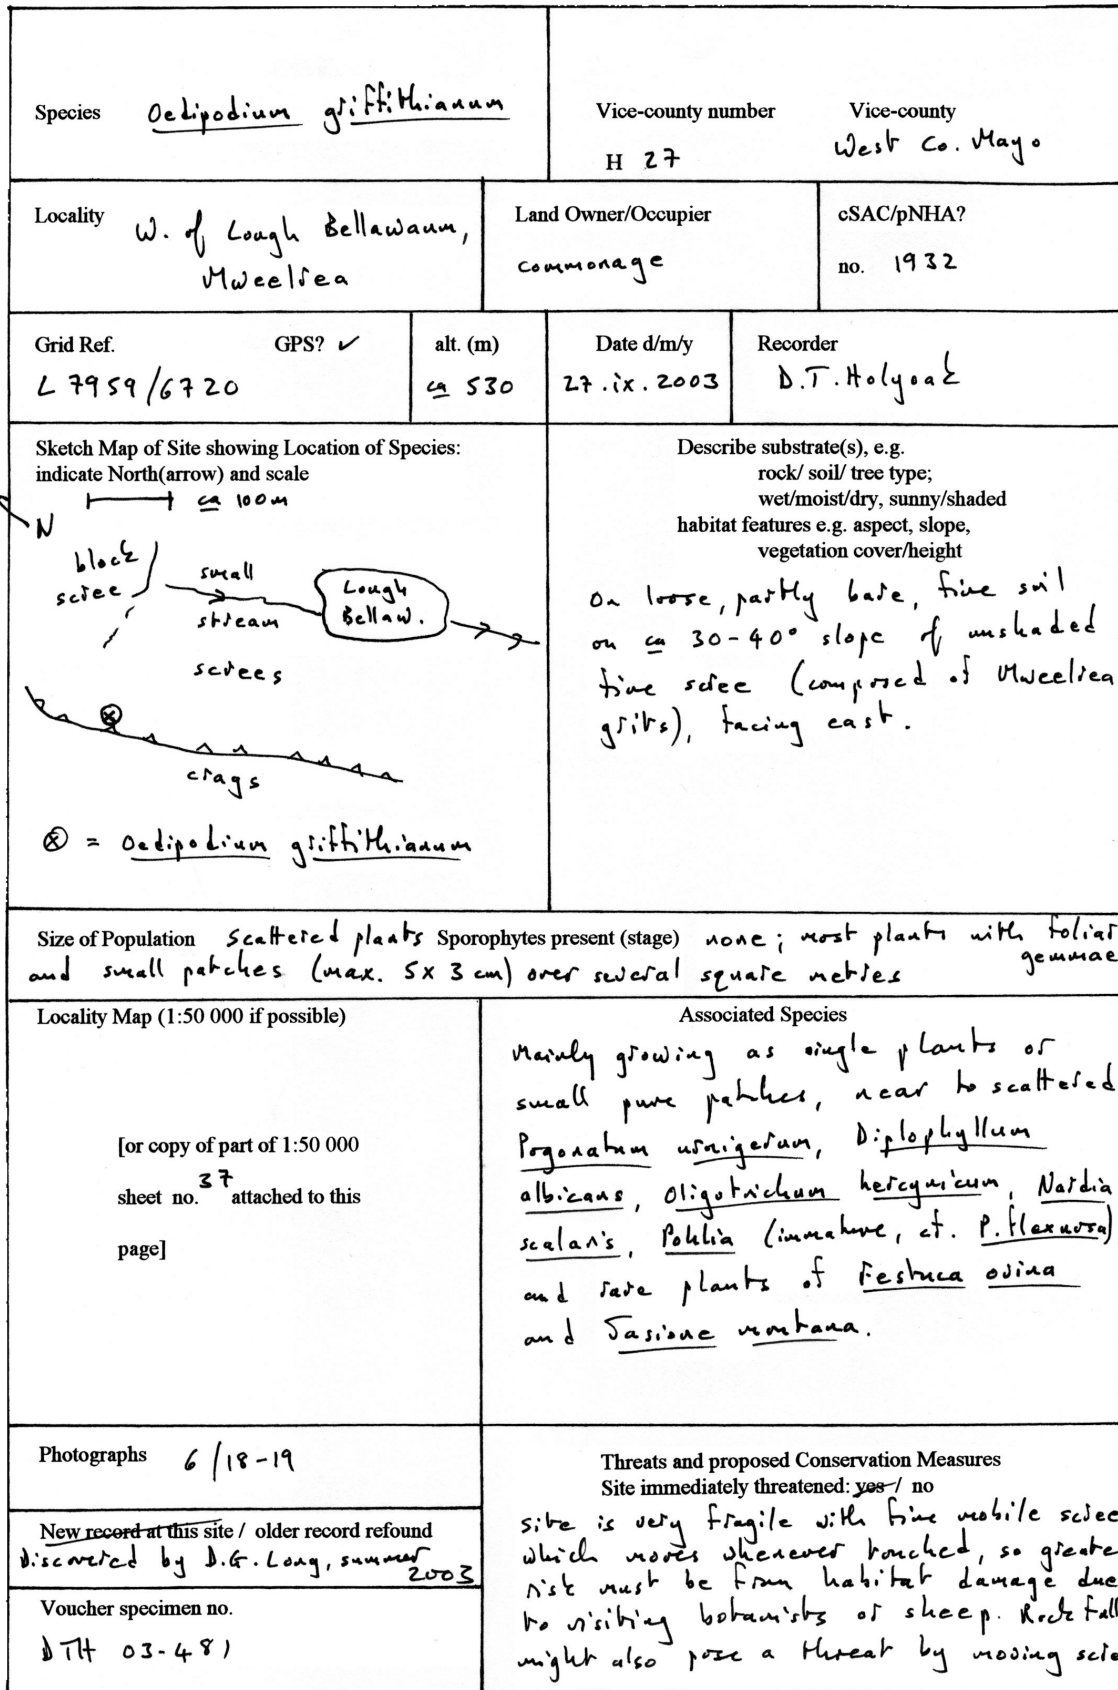 Species Oedipodium griffithianum
Vice-county number
H 27
Vice-county
West Co. Mayo
Locality W. of Lough Bellawaum,
Mweelrea
Land Owner/Occupier
commonage
cSAC/pNHA?
no. 1932
Grid Ref. GPS? ✓
L 7959/6720
alt. (m)
ca 530
Date d/m/y
27.ix.2003
Recorder
D.T. Holyoak
Sketch Map of Site showing Location of Species:
indicate North(arrow) and scale
ca 100m
N
block
scree
small
stream
Lough
Bellaw.
screes
crags
⊗ = Oedipodium griffithianum
Describe substrate(s), e.g.
rock/ soil/ tree type;
wet/moist/dry, sunny/shaded
habitat features e.g. aspect, slope,
vegetation cover/height
On loose, partly bare, fine soil
on ca 30-40° slope of unshaded
fine scree (composed of Mweelrea
grits), facing east.
Size of Population scattered plants Sporophytes present (stage) none; most plants with foliar
gemmae
and small patches (max. 5x3 cm) over several square metres
Locality Map (1:50 000 if possible)
[or copy of part of 1:50 000
sheet no. 37 attached to this
page]
Associated Species
Mainly growing as single plants or
small pure patches, near to scattered
Pogonatum urnigerum, Diplophyllum
albicans, Oligotrichum hercynicum, Nardia
scalaris, Pohlia (immature, cf. P. flexuosa)
and rare plants of Festuca ovina
and Jasione montana.
Photographs 6/18-19
New record at this site / older record refound
Discovered by D.G. Long, summer
2003
Voucher specimen no.
DTH 03-481
Threats and proposed Conservation Measures
Site immediately threatened: yes / no
Site is very fragile with fine mobile scree
which moves whenever touched, so greate
risk must be from habitat damage due
to visiting botanists or sheep. Rock fall
might also pose a threat by moving scre